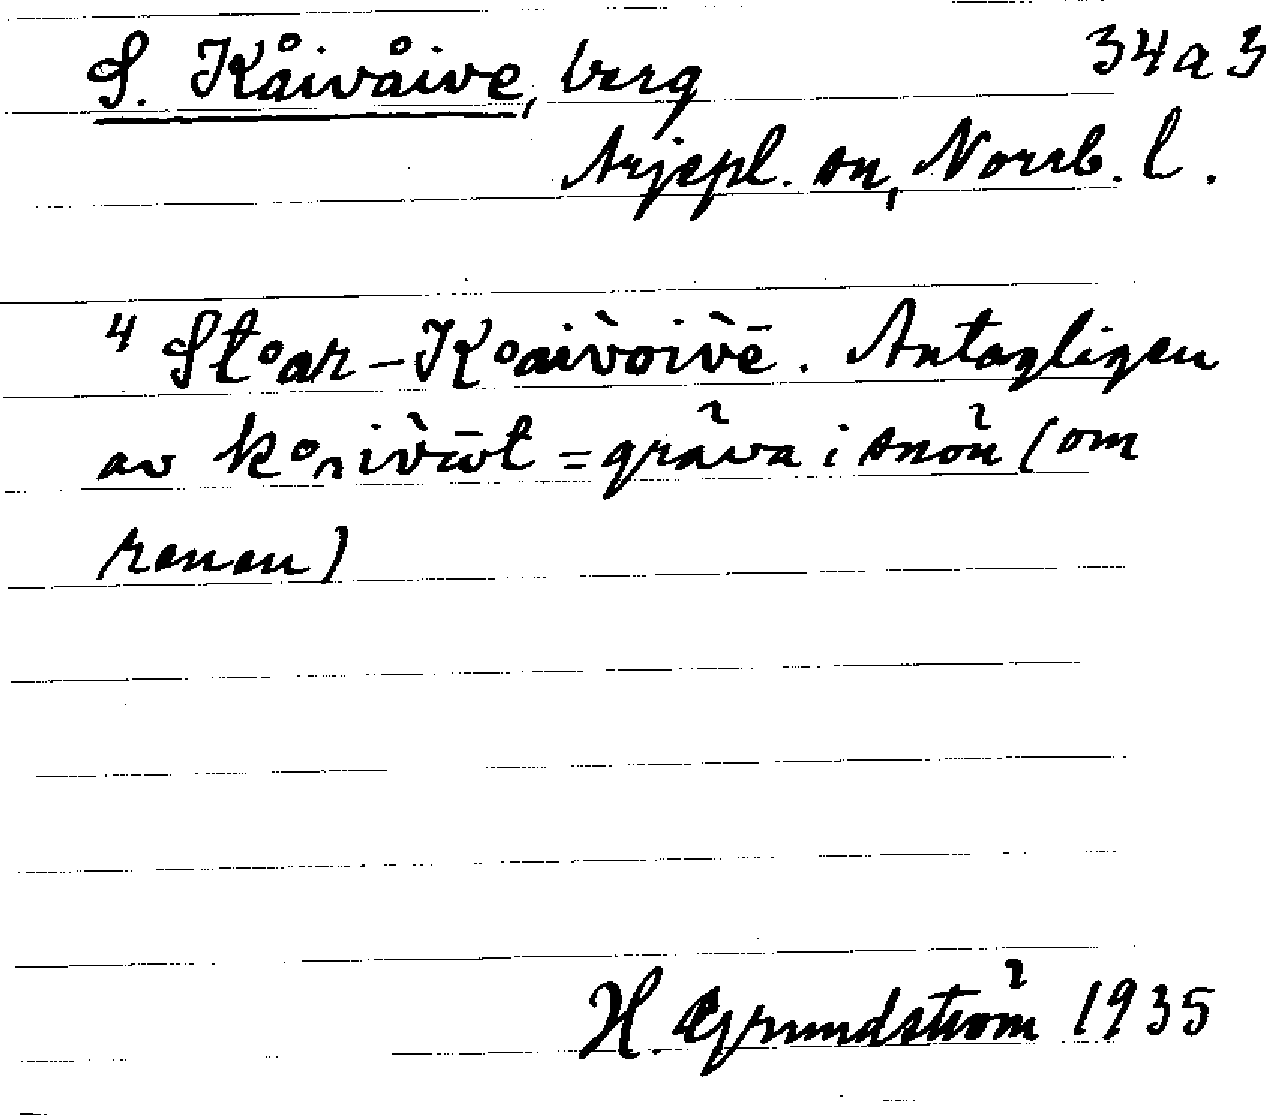 S. Kåivåive, berg 34a3
Arjepl. sn, Norrb. l.
4 Stºar-Kºaiv̀oiv̀ē. Antagligen
av = gräva i snön (om
renen)
H. Grundström 1935